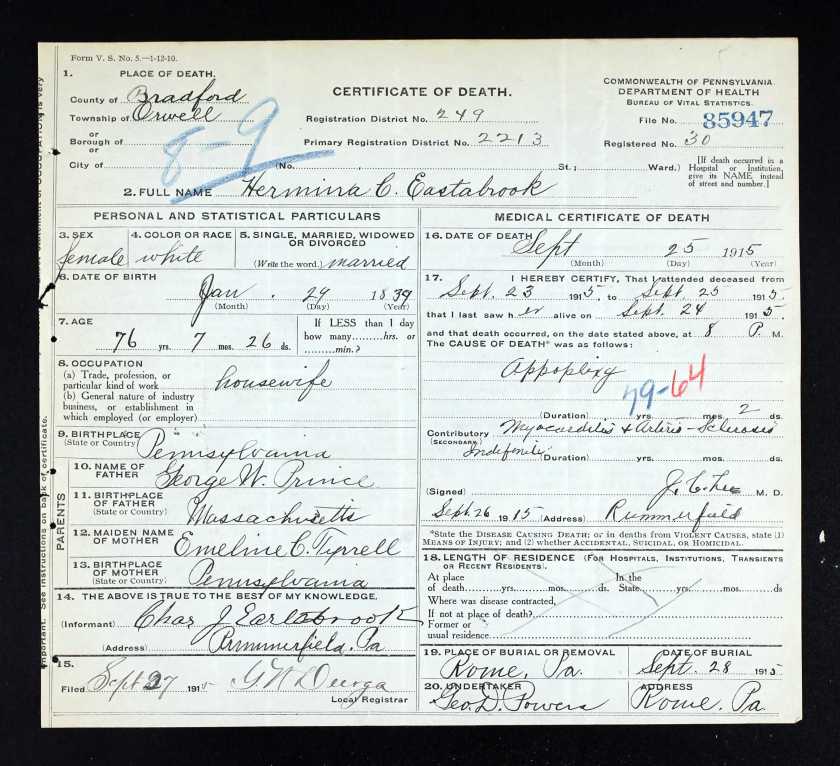 Form V. S. No. 5.—1-12-10.
1. PLACE OF DEATH.
County of Bradford
Township of Orwell
or
Borough of
or
City of
CERTIFICATE OF DEATH.
Registration District No. 249
Primary Registration District No. 2213
(No. , St.; Ward.)
COMMONWEALTH OF PENNSYLVANIA
DEPARTMENT OF HEALTH
BUREAU OF VITAL STATISTICS.
File No. 85947
Registered No. 30
[If death occurred in a
Hospital or Institution,
give its NAME instead
of street and number.]
8-9
2. FULL NAME Hermina C. Eastabrook
PERSONAL AND STATISTICAL PARTICULARS
3. SEX
female
4. COLOR OR RACE
white
5. SINGLE, MARRIED, WIDOWED
OR DIVORCED
(Write the word.) married
6. DATE OF BIRTH
Jan. 29 1839
(Month) (Day) (Year)
7. AGE
76 yrs. 7 mos. 26 ds.
If LESS than 1 day
how many hrs. or
min.?
8. OCCUPATION
(a) Trade, profession, or
particular kind of work
housewife
(b) General nature of industry
business, or establishment in
which employed (or employer)
9. BIRTHPLACE
(State or Country)
Pennsylvania
PARENTS
10. NAME OF
FATHER
George W. Prince
11. BIRTHPLACE
OF FATHER
(State or Country)
Massachusetts
12. MAIDEN NAME
OF MOTHER
Emeline C. Tyrrell
13. BIRTHPLACE
OF MOTHER
(State or Country)
Pennsylvania
14. THE ABOVE IS TRUE TO THE BEST OF MY KNOWLEDGE.
(Informant) Chas J. Eastabrook
(Address) Rummerfield, Pa
15.
Filed Sept 27 1915
Local Registrar
MEDICAL CERTIFICATE OF DEATH
16. DATE OF DEATH
Sept 25 1915
(Month) (Day) (Year)
17. I HEREBY CERTIFY, That I attended deceased from
Sept. 23 1915, to Sept. 25 1915
that I last saw her alive on Sept. 24 1915.
and that death occurred, on the date stated above, at 8 P. M.
The CAUSE OF DEATH* was as follows:
Appoplexy
79-64
(Duration) yrs. mos. 2 ds.
Contributory
(SECONDARY)
Myocarditis & Arterio-Sclerosis
Indefinite (Duration) yrs. mos. ds.
(Signed) J. C. Lee M. D.
Sept 26 1915 (Address) Rummerfield
*State the DISEASE CAUSING DEATH; or in deaths from VIOLENT CAUSES, state (1)
MEANS OF INJURY; and (2) whether ACCIDENTAL, SUICIDAL, OR HOMICIDAL.
18. LENGTH OF RESIDENCE (FOR HOSPITALS, INSTITUTIONS, TRANSIENTS
OR RECENT RESIDENTS).
At place
of death yrs. mos. ds.
In the
State yrs. mos. ds
Where was disease contracted,
If not at place of death?
Former or
usual residence
19. PLACE OF BURIAL OR REMOVAL
Rome, Pa.
DATE OF BURIAL
Sept. 28 1915
20. UNDERTAKER
Geo. D. Powers
ADDRESS
Rome, Pa
important. See instructions on back of certificate.